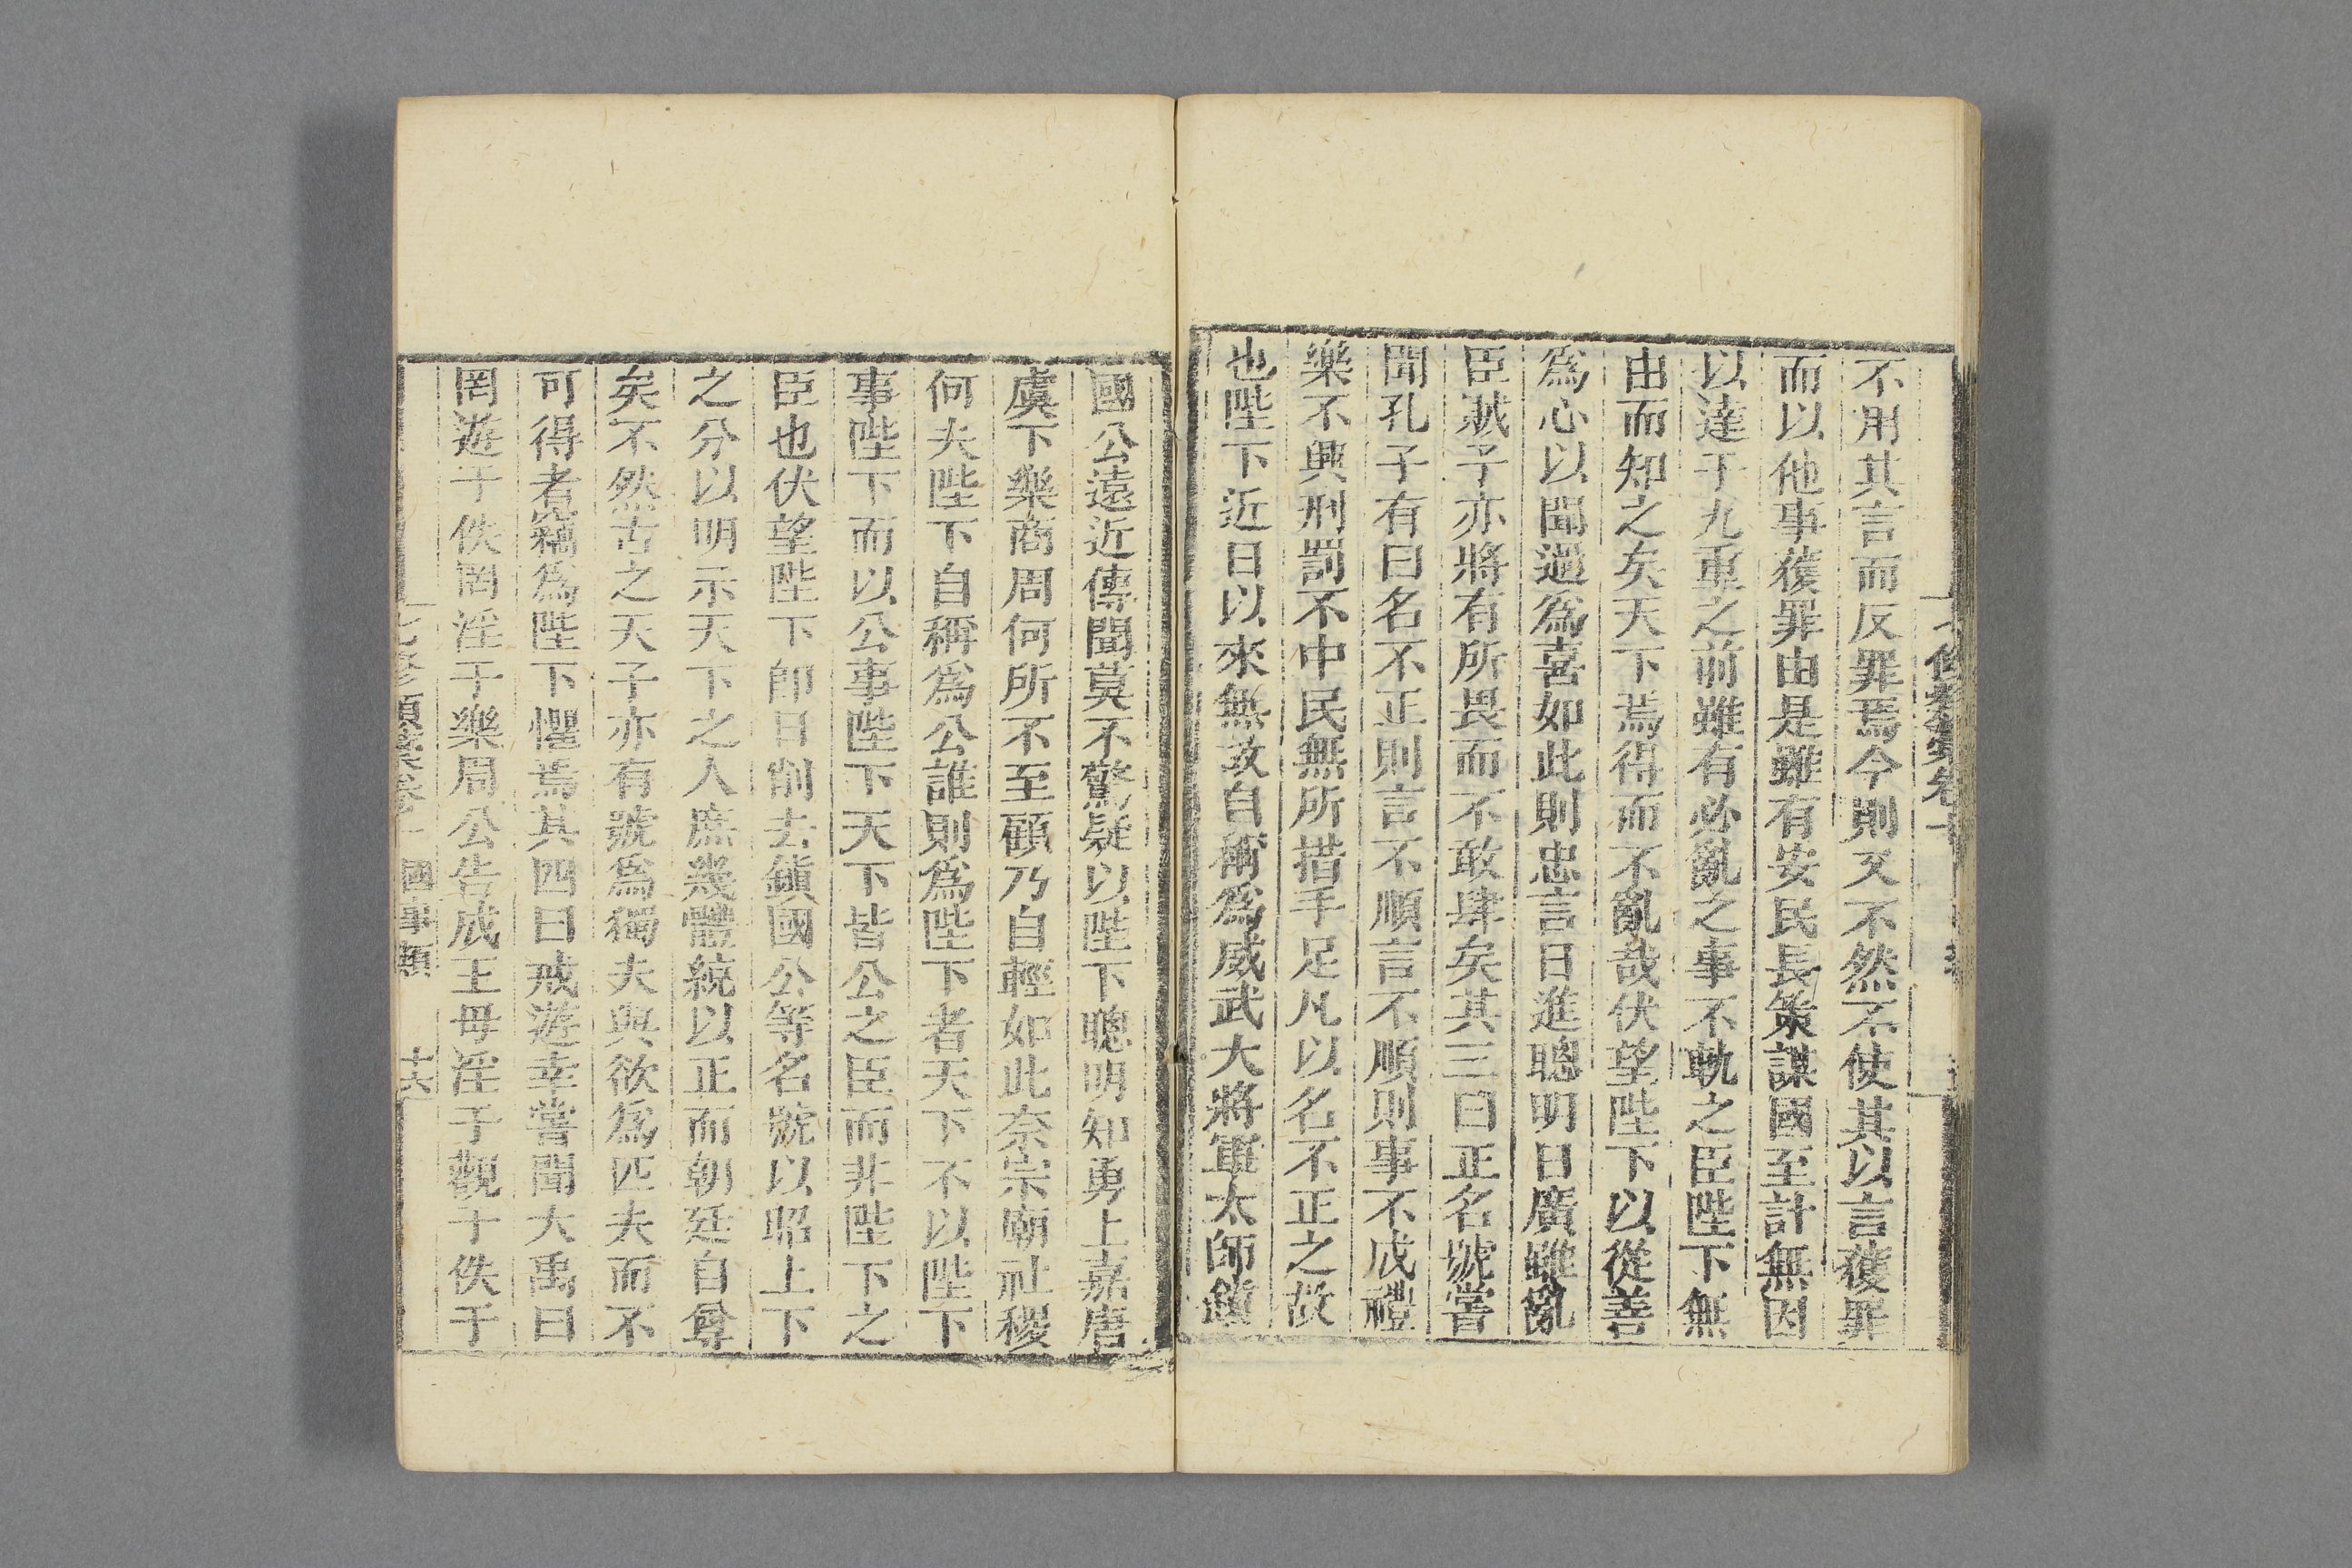 不用其言而反罪焉今則又不然不使其以言獲罪
而以他事獲罪由是雖有安民長策謀國至計無因
以達于九重之前雖有必亂之事不軌之臣陛下無
由而知之矣天下焉得而不亂哉伏望陛下以從善
為心以聞過為喜如此則忠言日進聰明日廣雖亂
臣賊子亦將有所畏而不敢肆矣其三曰正名號嘗
聞孔子有曰名不正則言不順言不順則事不成禮
樂不興刑罰不中民無所措手足凡以名不正之故
也陛下近日以來無故自稱為威武大將軍太師鎮
國公遠近傳聞莫不驚疑以陛下聰明知勇上嘉唐
虞下樂商周何所不至顧乃自輕如此奈宗廟社稷
何夫陛下自稱為公誰則為陛下者天下不以陛下
事陛下而以公事陛下天下皆公之臣而非陛下之
臣也伏望陛下即日削去鎮國公等名號以昭上下
之分以明示天下之人庶幾體統以正而朝廷自尊
矣不然古之天子亦有號為獨夫與欲為匹夫而不
可得者竊為陛下懼焉其四曰戒遊幸嘗聞大禹曰
罔遊于佚罔淫于樂周公告成王毋淫于觀于佚于
七修類藁卷十 國事類 十六